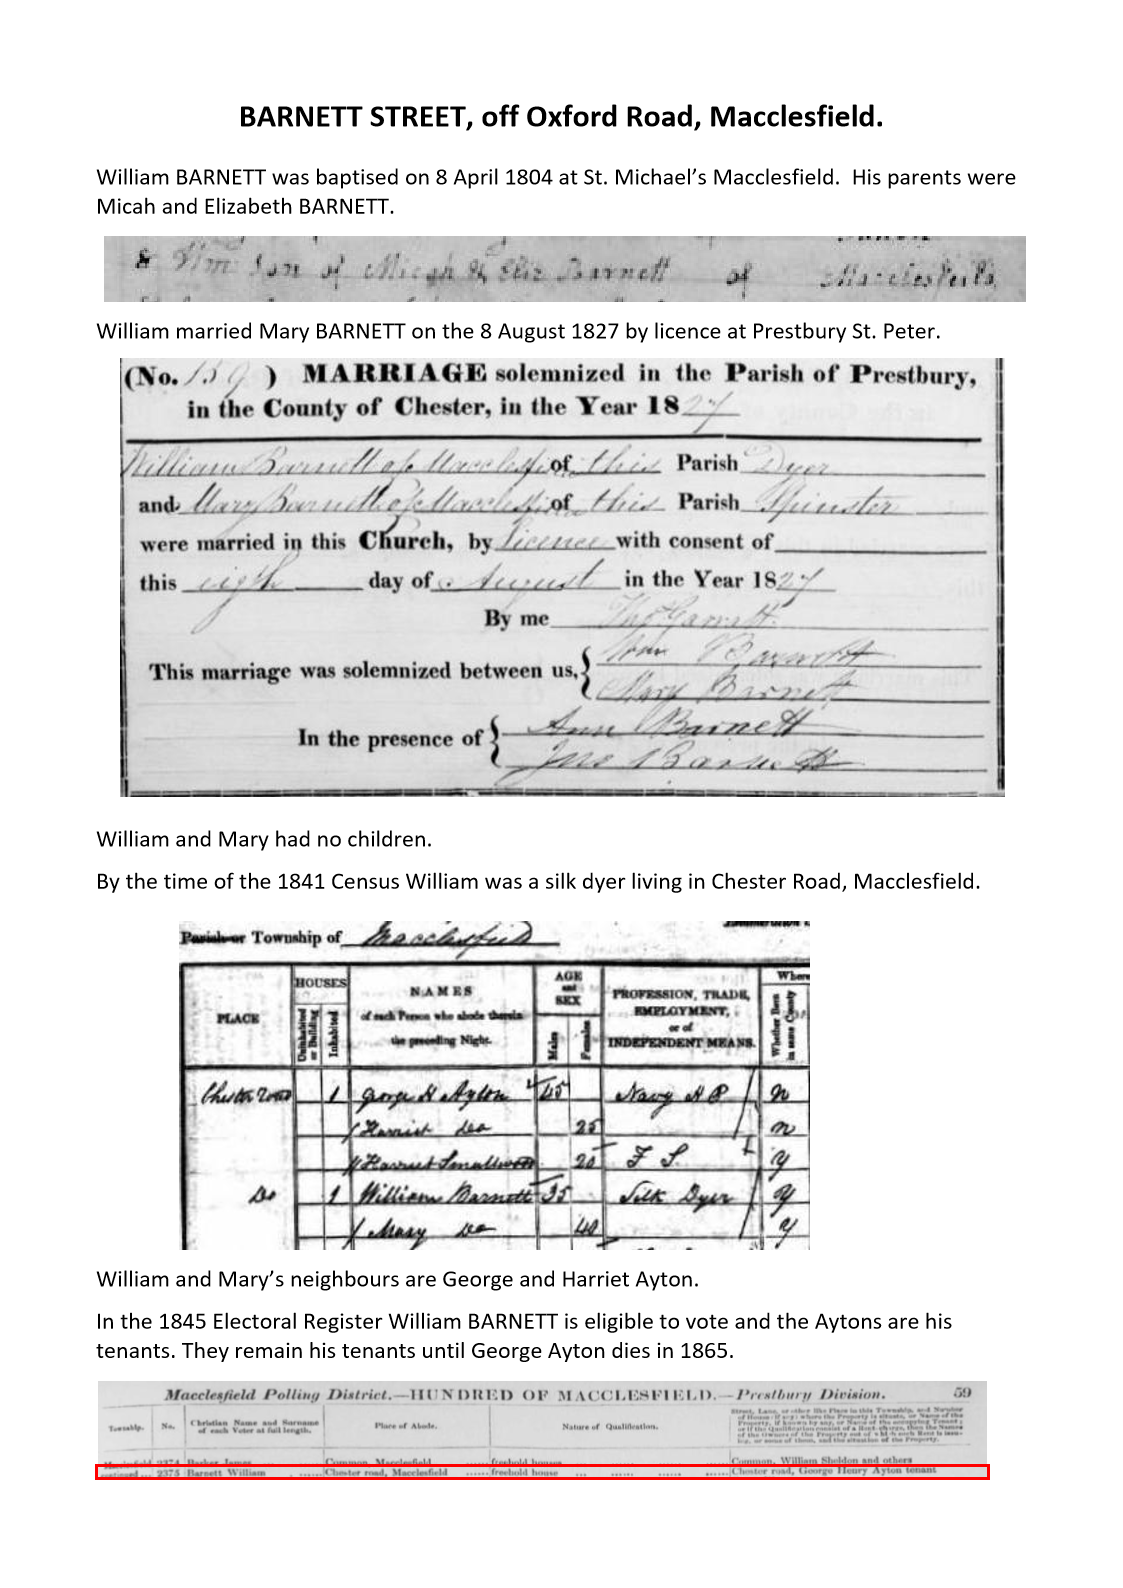 BARNETT STREET, off Oxford Road, Macclesfield.
William BARNETT was baptised on 8 April 1804 at St. Michael's Macclesfield.  His parents were
Micah and Elizabeth BARNETT.
& Wm Son of Micah & Eliz Barnett of Macclesfield
William married Mary BARNETT on the 8 August 1827 by licence at Prestbury St. Peter.
(No. 159 ) MARRIAGE solemnized in the Parish of Prestbury,
in the County of Chester, in the Year 1827
William Barnett of Macclesfi of this Parish Dyer
and Mary Barnett of Macclesfi of this Parish Spinster
were married in this Church, by Licence with consent of
this eigth day of August in the Year 1827
By me Thos Garnett.
This marriage was solemnized between us, { Wm Barnett
Mary Barnett
In the presence of { Ann Barnett
Jno Barnett
William and Mary had no children.
By the time of the 1841 Census William was a silk dyer living in Chester Road, Macclesfield.
Parish or Township of Macclesfield
PLACE HOUSES Uninhabited or Building Inhabited NAMES of each Person who abode therein the preceding Night. AGE and SEX Males Females PROFESSION, TRADE, EMPLOYMENT, or of INDEPENDENT MEANS. Where Whether Born in same County
Chester Road 1 George H Ayton 45 Navy H P n
Harriet do 25 n
Harriet Smallwood 20 F S. y
Do 1 William Barnett 35 Silk Dyer y
Mary do 40 y
William and Mary's neighbours are George and Harriet Ayton.
In the 1845 Electoral Register William BARNETT is eligible to vote and the Aytons are his
tenants. They remain his tenants until George Ayton dies in 1865.
Macclesfield Polling District.—HUNDRED OF MACCLESFIELD.—Prestbury Division. 59
Township. No. Christian Name and Surname of each Voter at full length. Place of Abode. Nature of Qualification. Street, Lane, or other like Place in this Township, and Number of House (if any) where the Property is situate, or Name of the Property, if known by any, or Name of the occupying Tenant; or if the Qualification consist of a Rent-charge, then the Names of the Owners of the Property out of which such Rent is issuing, or some of them, and the situation of the Property.
Macclesfield 2374 Barker James Common, Macclesfield freehold houses Common, William Sheldon and others
continued ... 2375 Barnett William ...... Chester road, Macclesfield ...... freehold house ... ...... ...... ...... Chester road, George Henry Ayton tenant